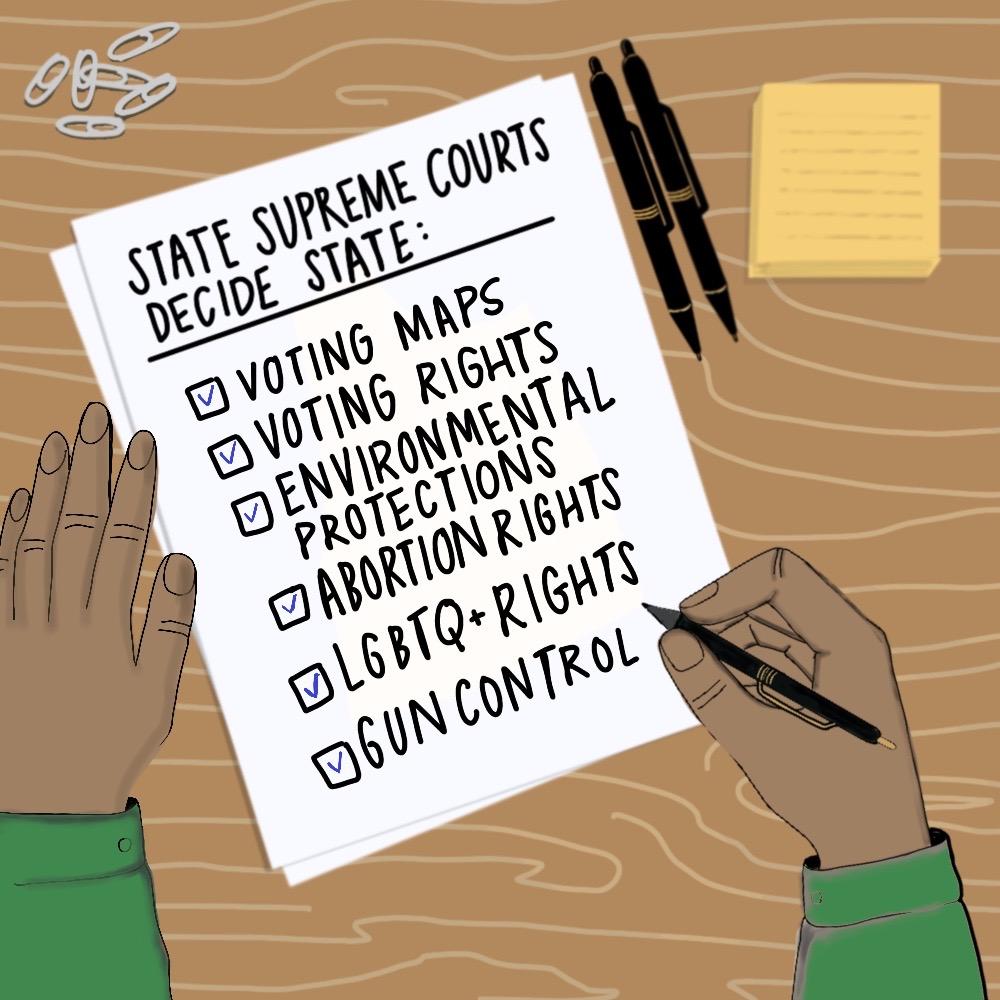 STATE SUPREME COURTS
DECIDE STATE:
VOTING MAPS
VOTING RIGHTS
ENVIRONMENTAL
PROTECTIONS
ABORTION RIGHTS
LGBTQ+ RIGHTS
GUN CONTROL